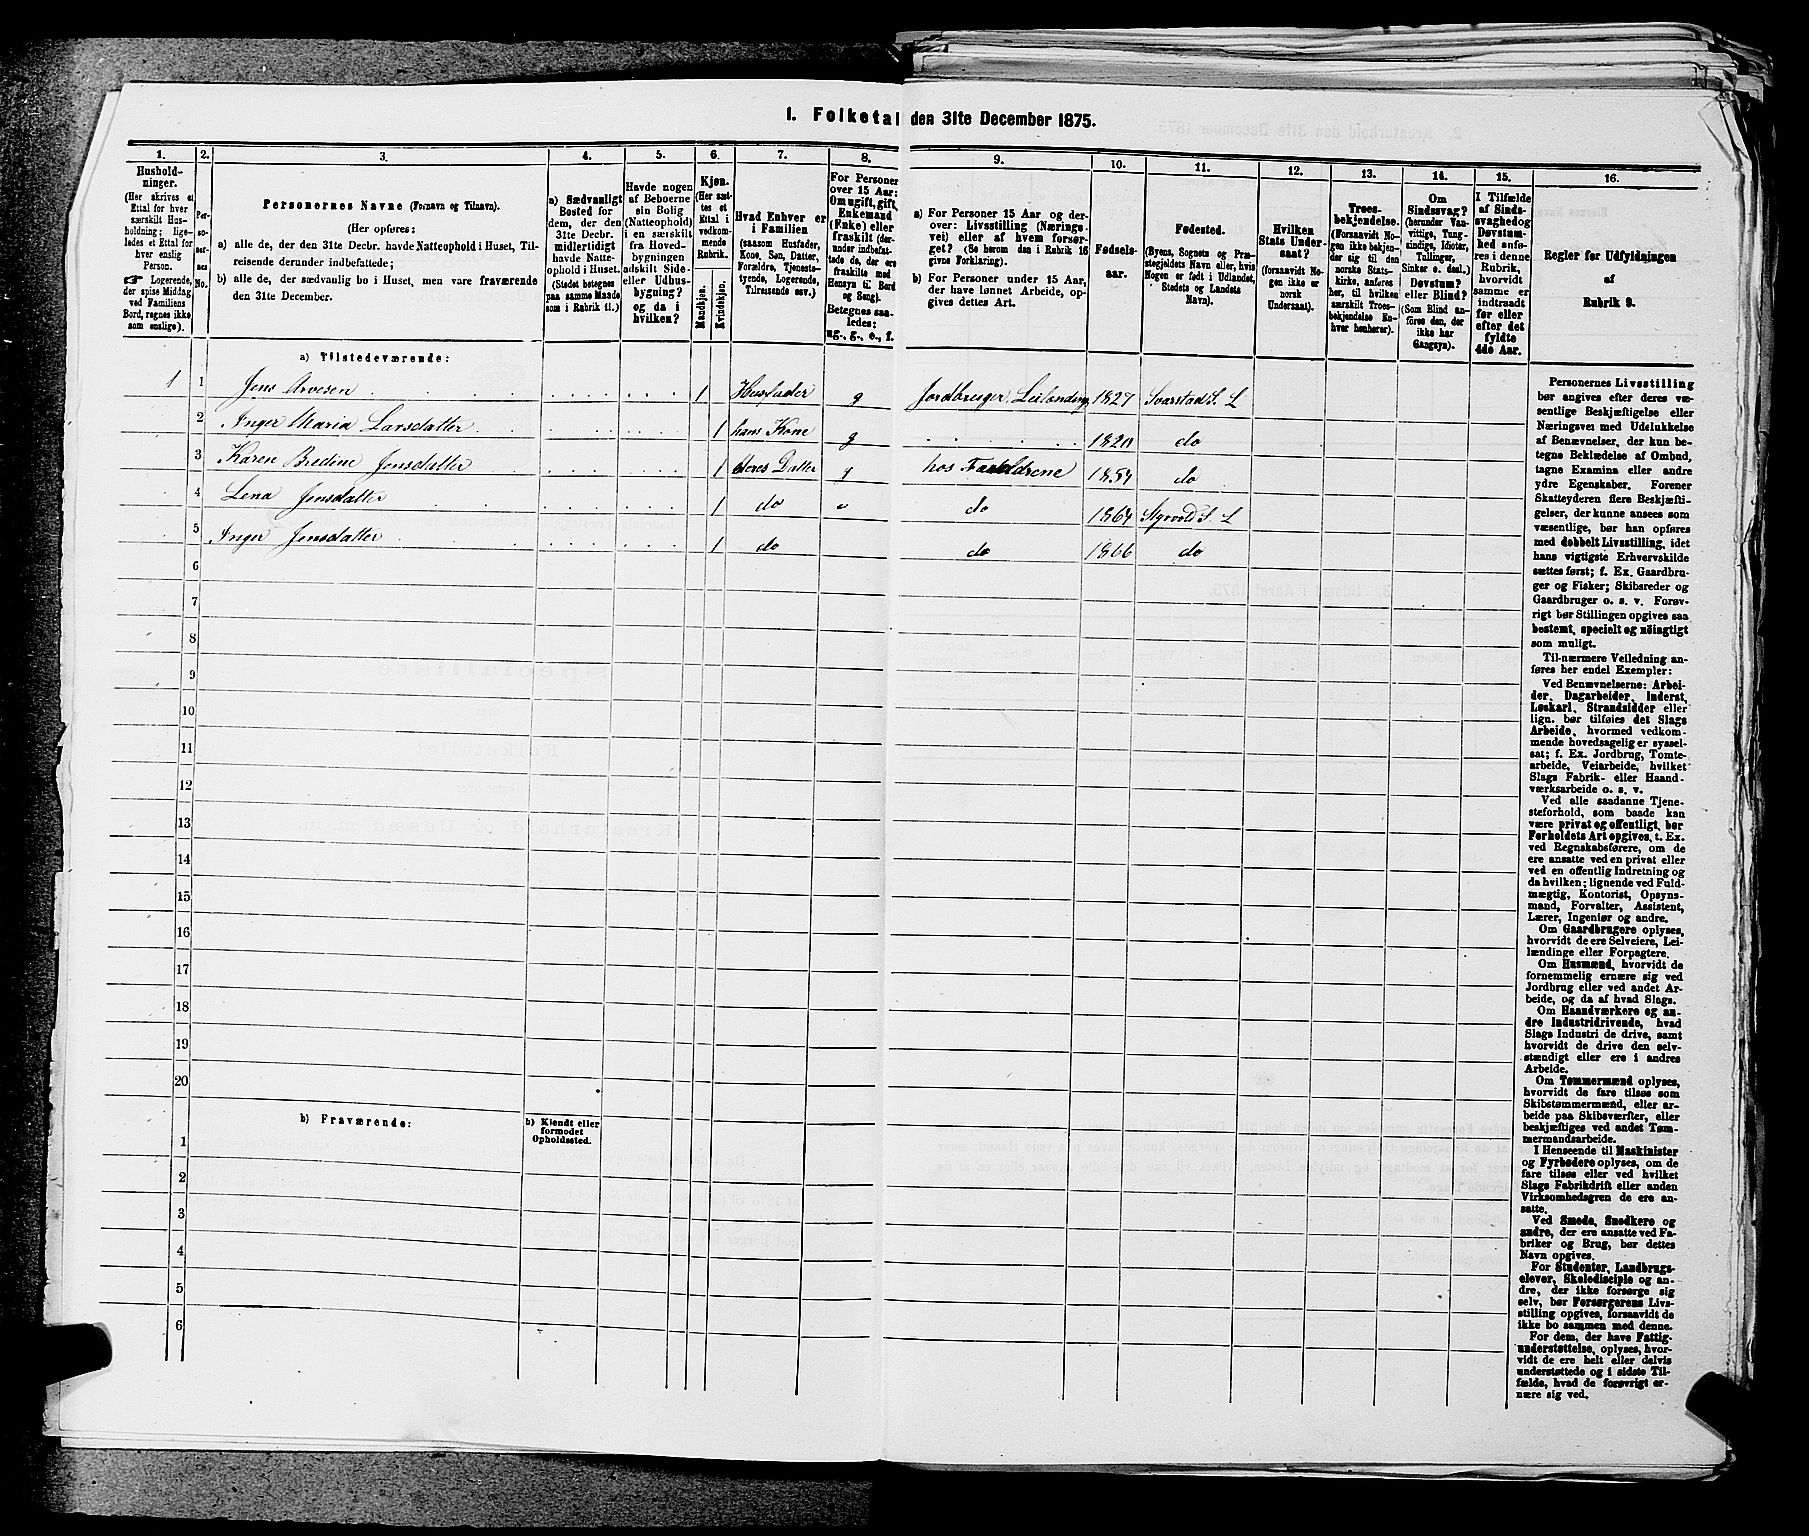 1. Folketal den 31te December 1875.
1.
2.
3.
4.
5.
6.
7.
8.
9.
10.
11.
12.
13.
14.
15.
16.
Hushold-
ninger.
(Her skrives et
Ettal for hver
særskilt Hus-
holdning; lige-
ledes et Ettal for
hver enslig
Person.
☛ Logerende,
der spise Middag
ved Familiens
Bord, regnes ikke
som enslige).
Per-
so-
ner-
nes
No.
Personernes Navne (Fornavn og Tilnavn).
(Her opføres:
a) alle de, der den 31te Decbr. havde Natteophold i Huset, Til-
reisende derunder indbefattede;
b) alle de, der sædvanlig bo i Huset, men vare fraværende
den 31te December.
a) Sædvanligt
Bosted for
dem, der den
31te Decbr.
midlertidigt
havde Natte-
ophold i Huset.
(Stedet betegnes
paa samme Maade
som i Rubrik 11.)
Havde nogen
af Beboerne
sin Bolig
(Natteophold)
i en særskilt
fra Hoved-
bygningen
adskilt Side-
eller Udhus-
bygning?
og da i
hvilken?
Kjøn.
(Her sæt-
tes et
Ettal i
vedkom-
mende
Rubrik.
Mandkjøn.
Kvindekjøn.
Hvad Enhver er
i Familien
(saasom Husfader,
Kone, Søn, Datter,
Forældre, Tjeneste-
tyende, Logerende,
Tilreisende osv.)
For Personer
over 15 Aar:
Om ugift, gift,
Enkemand
(Enke) eller
fraskilt (der-
under indbefat-
tede de, der ere
fraskilte med
Hensyn til Bord
og Seng).
Betegnes saa-
ledes:
ug., g., e., f.
a) For Personer 15 Aar og der-
over: Livsstilling (Nærings-
vei) eller af hvem forsør-
get? (Se herom den i Rubrik 16
givne Forklaring).
b) For Personer under 15 Aar,
der have lønnet Arbeide, op-
gives dettes Art.
Fødsels-
aar.
Fødested.
(Byens, Sognets og Præ-
stegjeldets Navn eller, hvis
Nogen er født i Udlandet,
Stedets og Landets
Navn).
Hvilken
Stats Under-
saat?
(forsaavidt No-
gen ikke er
norsk
Undersaat).
Troes-
bekjendelse.
(Forsaavidt No-
gen ikke bekjen-
der sig til den
norske Stats-
kirke, anføres
her, til hvilken
særskilt Troes-
bekjendelse En-
hver henhører).
Om
Sindssvag?
(herunder Van-
vittige, Tung-
sindige, Idioter,
Tullinger,
Sinker o. desl.)
Døvstum?
eller Blind?
(Som Blind an-
føres den, der
ikke har
Gangsyn).
I Tilfælde
af Sinds-
svaghed og
Døvstum-
hed anfø-
res i denne
Rubrik,
hvorvidt
samme er
indtraadt
før eller
efter det
fyldte
4de Aar.
Regler for Udfyldningen
af
Rubrik 9.
a) Tilstedeværende:
1 1 Jens Arvesen 1 Husfader g Jordbruger Leilænding 1827 Svarstad S. L
2 Anger Maria Larsdatter 1 hans Kone g 1820 do
3 Karen Bredine Jensdatter 1 deres Datter hos Forældrene 1854 do
4 Lena Jensdatter 1 do do 1864 Styrvold S. L
5 Anger Jensdatter 1 do do 1866 do
6
7
8
9
10
11
12
13
14
15
16
17
18
19
20
b) Fraværende:
b) Kjendt eller
formodet
Opholdssted.
1
2
3
4
5
6
Personernes Livsstilling
bør angives efter deres væ-
sentlige Beskjæftigelse eller
Næringsvei med Udelukkelse
af Benævnelser, der kun be-
tegne Beklædelse af Ombud,
tagne Examina eller andre
ydre Egenskaber. Forener
Skatteyderen flere Beskjæfti-
gelser, der kunne ansees som
væsentlige, bør han opføres
med dobbelt Livsstilling, idet
hans vigtigste Erhvervskilde
sættes først; f. Ex. Gaardbru-
ger og Fisker; Skibsreder og
Gaardbruger o. s. v. Forøv-
rigt bør Stillingen opgives saa
bestemt, specielt og nøiagtigt
som muligt.
Til nærmere Veiledning an-
føres her endel Exempler:
Ved Benævnelserne: Arbei-
der, Dagarbeider, Inderst,
Løskarl, Strandsidder eller
lign. bør tilføies det Slags
Arbeide, hvormed vedkom-
mende hovedsagelig er syssel-
sat; f. Ex. Jordbrug, Tomte-
arbeide, Veiarbeide, hvilket
Slags Fabrik- eller Haand-
værksarbeide o. s. v.
Ved alle saadanne Tjene-
steforhold, som baade kan
være privat og offentligt, bør
Forholdets Art opgives, t. Ex.
ved Regnskabsførere, om de
ere ansatte ved en privat eller
ved en offentlig Indretning og
da hvilken; lignende ved Fuld-
mægtig, Kontorist, Opsyns-
mand, Forvalter, Assistent,
Lærer, Ingeniør og andre.
Om Gaardbrugere oplyses,
hvorvidt de ere Selveiere, Lei-
lændinge eller Forpagtere.
Om Husmænd, hvorvidt de
fornemmelig ernære sig ved
Jordbrug eller ved andet Ar-
beide, og da af hvad Slags.
Om Haandværkere og an-
dre Industridrivende, hvad
Slags Industri de drive, samt
hvorvidt de drive den selv-
stændigt eller ere i andres
Arbeide.
Om Tømmermænd oplyses,
hvorvidt de fare tilsøs som
Skibstømmermænd, eller ar-
beide paa Skibsværfter, eller
beskjæftiges ved andet Tøm-
mermandsarbeide.
I Henseende til Maskinister
og Fyrbødere oplyses, om de
fare tilsøs eller ved hvilket
Slags Fabrikdrift eller anden
Virksomhedsgren de ere an-
satte.
Ved Smede, Snedkere og
andre, der ere ansatte ved Fa-
briker og Brug, bør dettes
Navn opgives.
For Studenter, Landbrugs-
elever, Skoledisciple og an-
dre, der ikke forsørge sig
selv, bør Forsørgerens Livs-
stilling opgives, forsaavidt de
ikke bo sammen med denne.
For dem, der have Fattig-
understøttelse, oplyses, hvor-
vidt de ere helt eller delvis
understøttede og i sidste Til-
fælde, hvad de forøvrigt er-
nære sig ved.